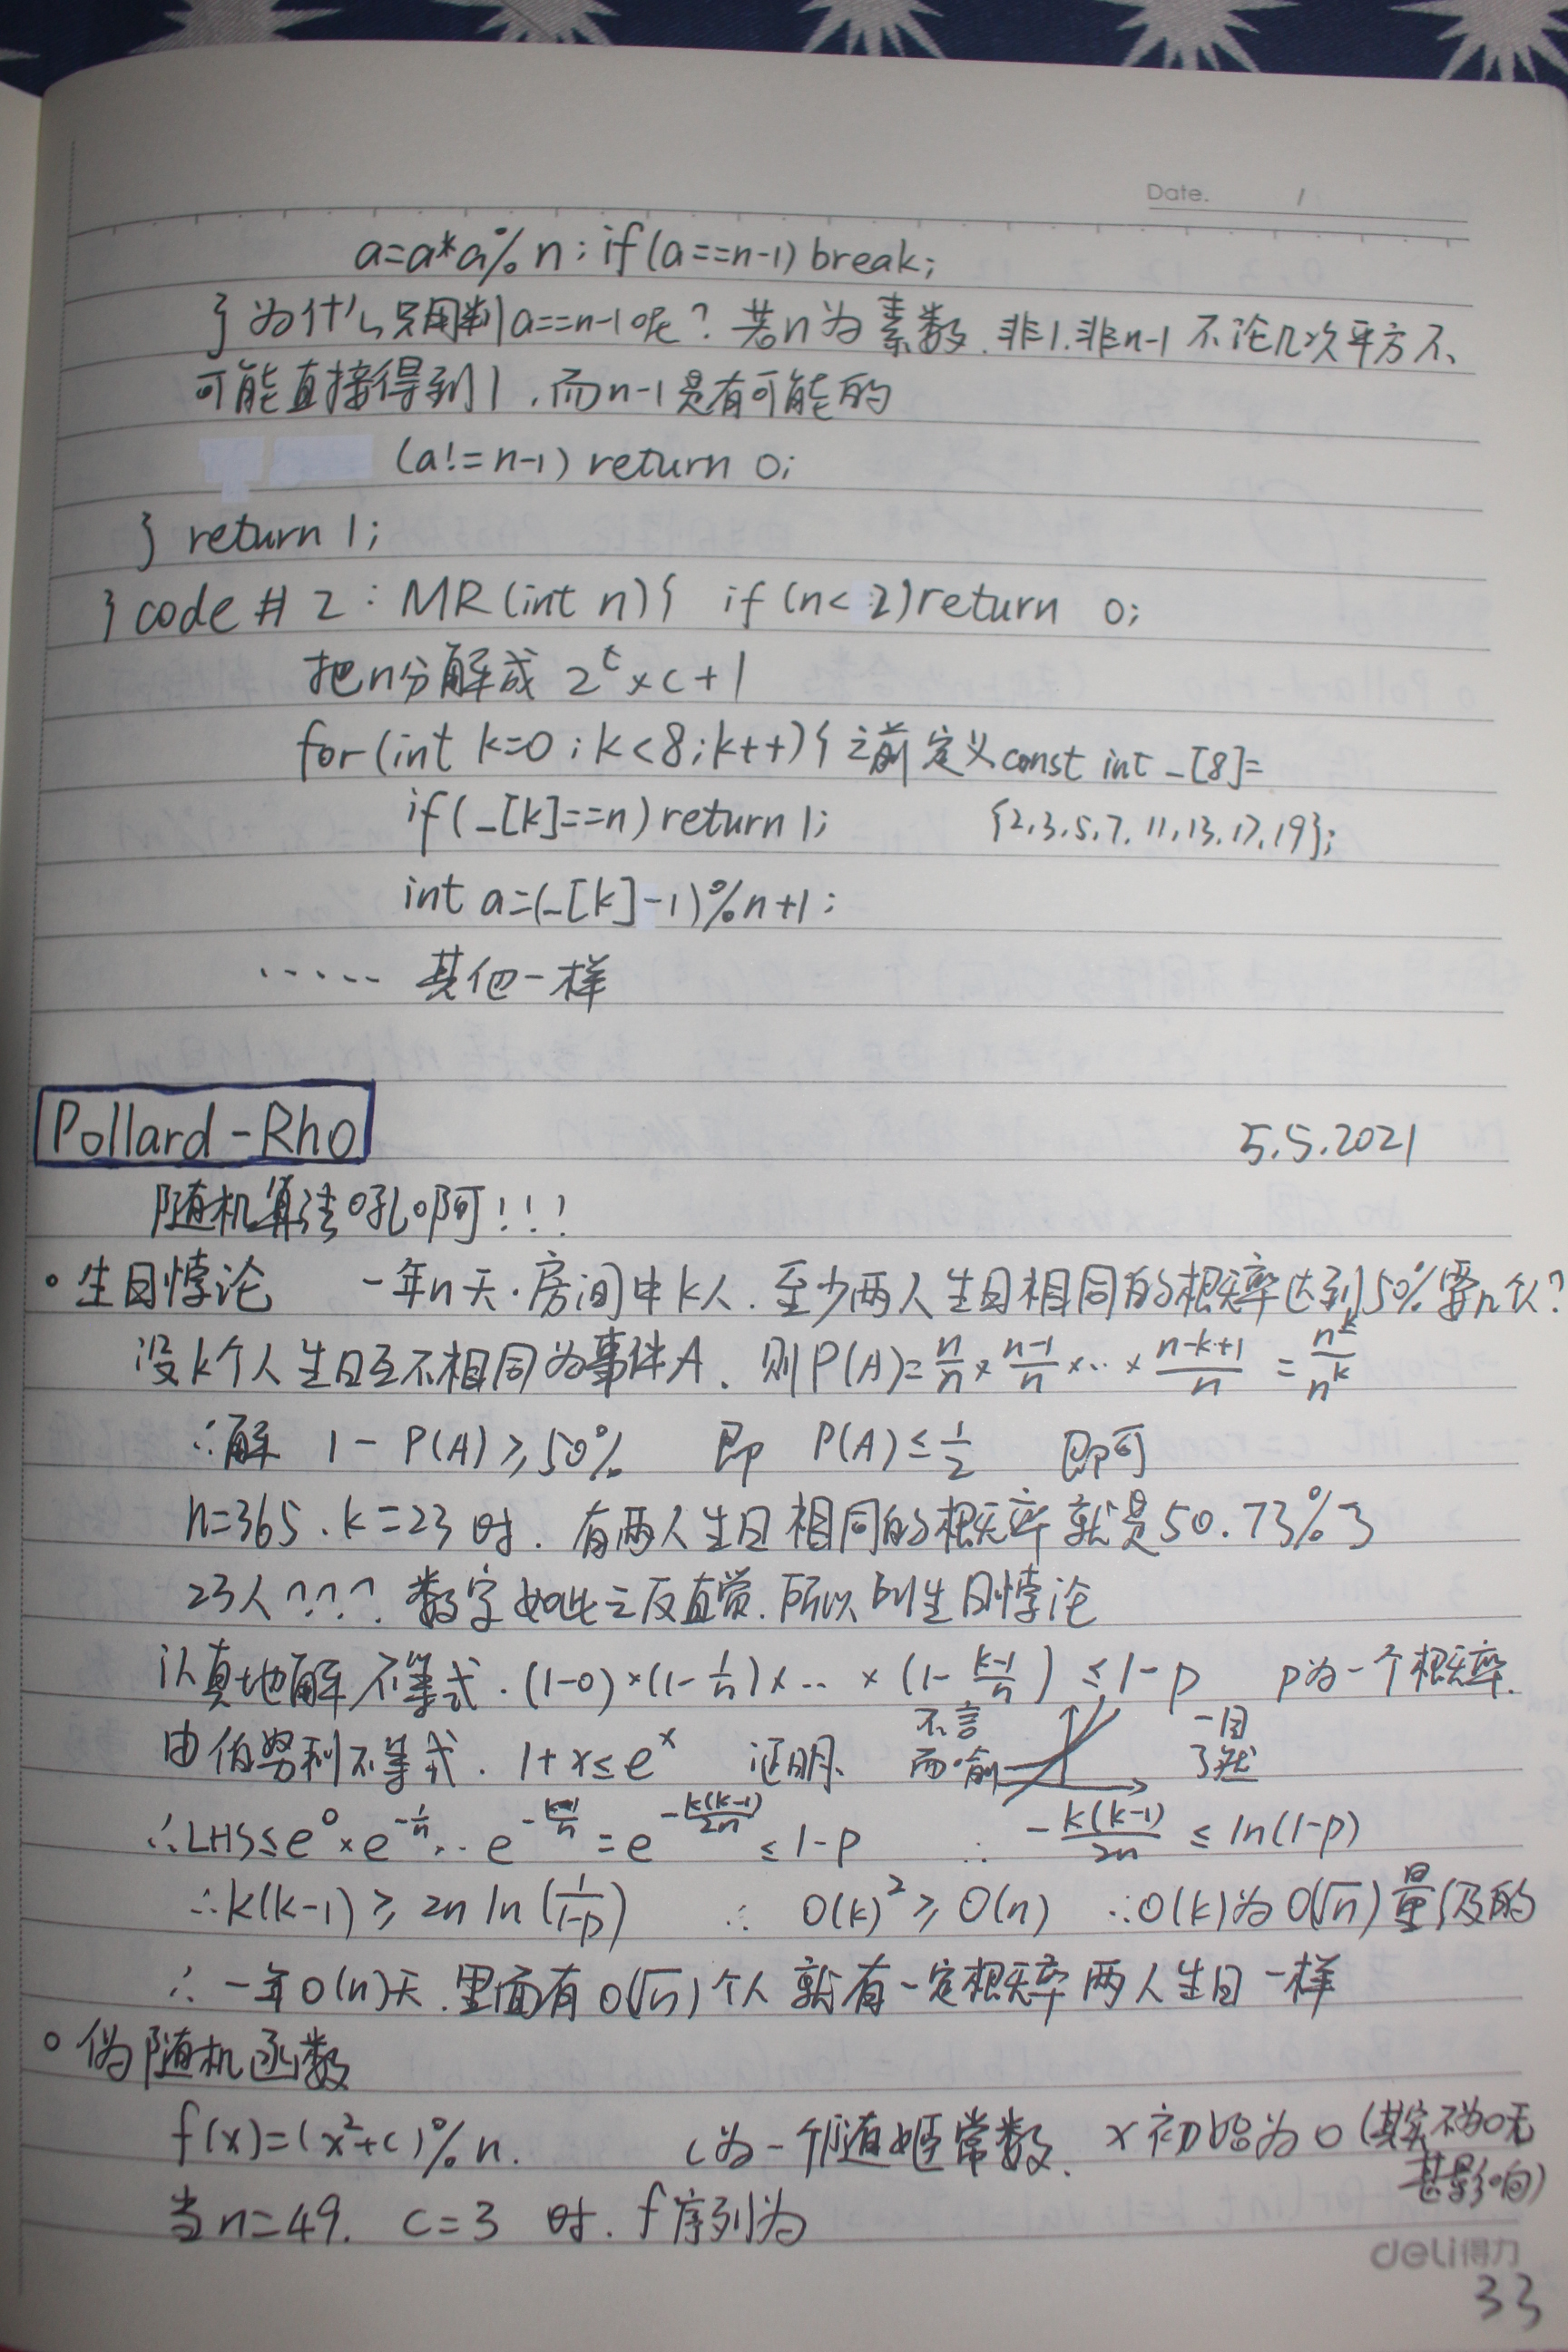 Date. /
a=a*a%n; if(a==n-1) break;
} 为什么只用判a==n-1呢? 若n为素数,非1,非n-1 不论几次平方不
可能直接得到1,而n-1是有可能的
(a!=n-1) return 0;
} return 1;
} code #2: MR(int n){ if(n<2)return 0;
把n分解成 2^t×c+1
for(int k=0;k<8;k++){ 之前定义const int _[8]=
if(_[k]==n)return 1; {2,3,5,7,11,13,17,19};
int a=(_[k]-1)%n+1;
...... 其他一样
Pollard-Rho 5.5.2021
随机算法吼啊!!!
• 生日悖论 一年n天.房间中k人.至少两人生日相同的概率达到50%要几个人?
设k个人生日互不相同为事件A. 则P(A)=n/n×(n-1)/n×..×(n-k+1)/n=n^k/n^k
∴解 1-P(A)≥50% 即 P(A)≤1/2 即可
n=365.k=23时.有两人生日相同的概率就是50.73%了
23人???.数字如此之反直觉.所以叫生日悖论
认真地解不等式.(1-0)×(1-1/n)×..×(1-(k-1)/n)≤1-p p为一个概率.
由伯努利不等式. 1+x≤e^x 证明. 不言而喻 一目了然
∴LHS≤e^0×e^(-1/n)..e^(-(k-1)/n)=e^(-k(k-1)/2n)≤1-p ∴ -k(k-1)/2n≤ln(1-p)
∴k(k-1)≥2n ln(1/(1-p)) ∴ O(k)²≥O(n) ∴O(k)为O(√n)量级的
∴一年O(n)天.里面有O(√n)个人就有一定概率两人生日一样
• 伪随机函数
f(x)=(x²+c)%n. c为一个随机常数. x初始为0(其实不为0无
甚影响)
当n=49. c=3 时.f序列为
deli得力
33